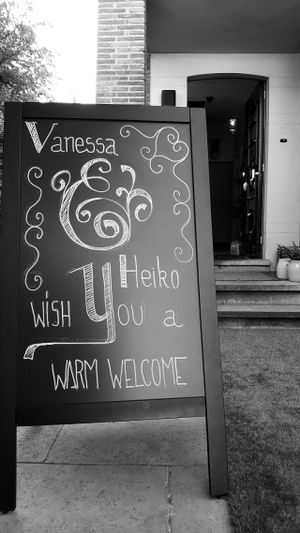 Vanessa
&
Heiko
wish You a
WARM WELCOME